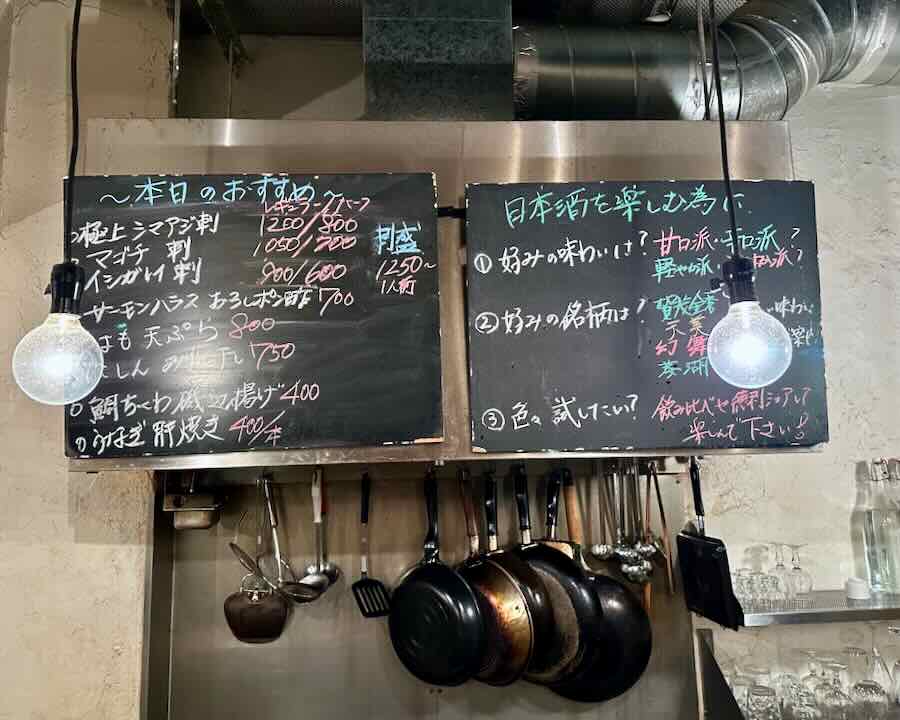 ~本日のおすすめ~
レギュラー/ハーフ
極上シマアジ刺 1200/800
マゴチ 刺 1050/700
イシガレイ刺 900/600
刺盛
1250~
1人前
サーモンハラス おろしポン酢 700
はも 天ぷら 800
750
鯛ちくわ磯辺揚げ400
うなぎ肝焼き 400/本
日本酒を楽しむ為に
① 好みの味わいは? 甘口派・辛口派?
軽やか派
② 好みの銘柄は? 賀茂金秀
天美
幻舞
味わい
③ 色々試したい? 飲み比べや徳利シェアして
楽しんで下さい